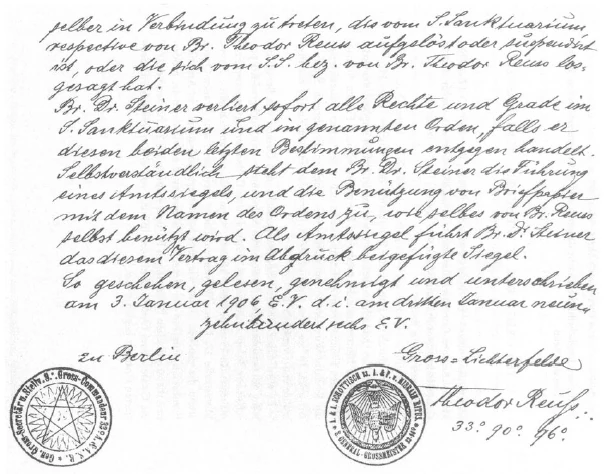 selber in Verbindung zu treten, die vom S. Sanktuarium,
respective von Br. Theodor Reuss aufgelöst oder suspendirt
ist, oder die sich vom S.S. bez. von Br. Theodor Reuss los-
gesagt hat.
Br. Dr. Steiner verliert sofort alle Rechte und Grade im
S. Sanktuarium und im genannten Orden, falls er
diesen beiden letzten Bestimmungen entgegen handelt.
Selbstverständlich steht dem Br. Dr. Steiner die Führung
eines Amtssiegels, und die Benützung von Briefpapier
mit dem Namen des Ordens zu, wie selbes von Br. Reuss
selbst benützt wird. Als Amtssiegel führt Br. Dr. Steiner
das diesem Vertrag im Abdruck beigefügte Siegel.
So geschehen, gelesen, genehmigt und unterschrieben
am 3. Januar 1906, E.V. d. i. am dritten Januar neun-
zehnhundert sechs E.V.
zu Berlin
Gross=Lichterfelde
Theodor Reuss
33° 90° 96°
Gen. Gross-Secretär u. Stellv. Gross-Commandeur